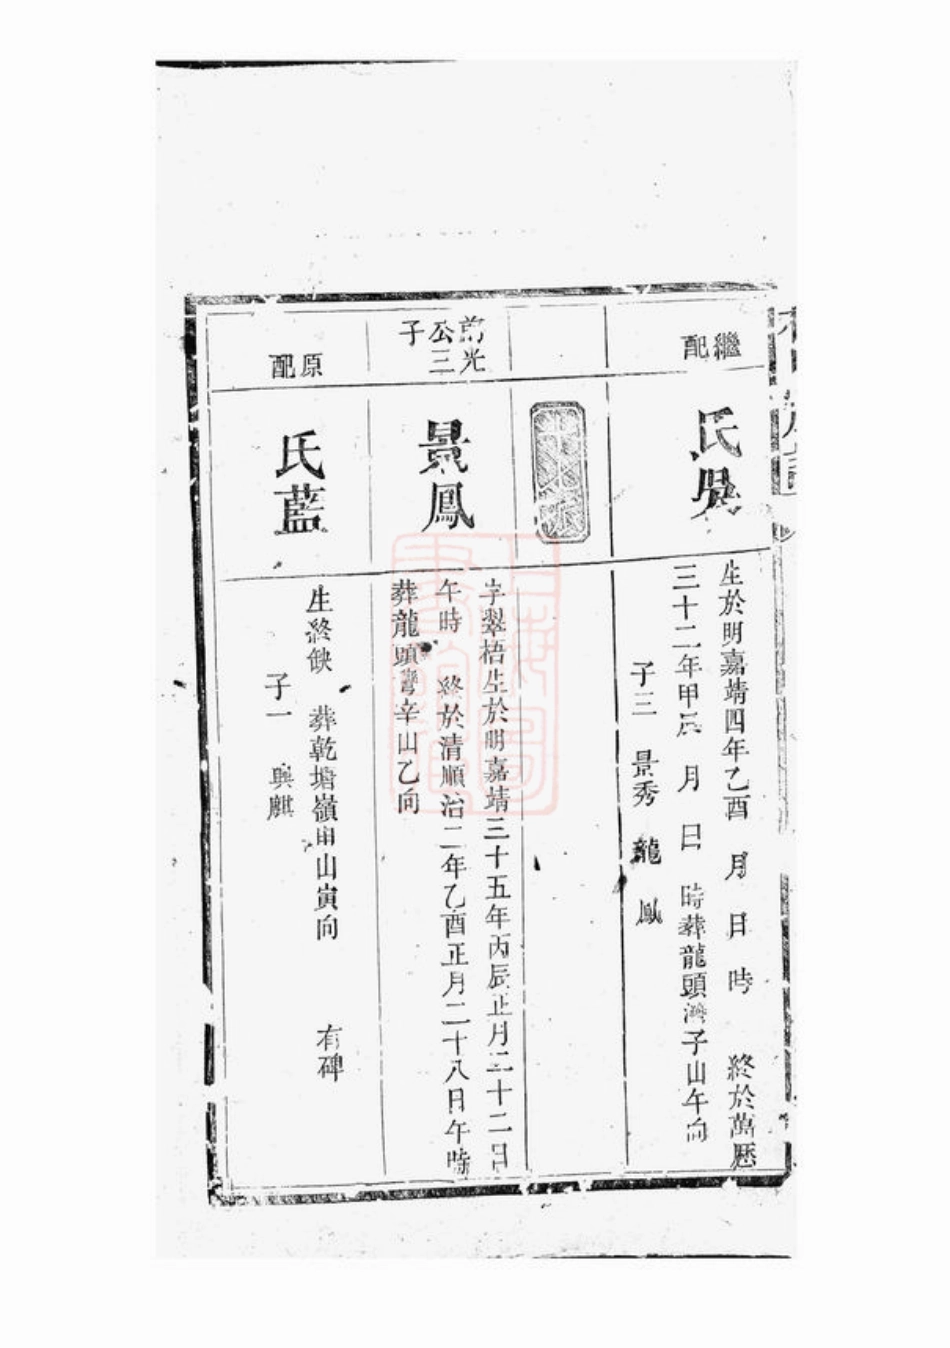 繼配
氏吳
生於明嘉靖四年乙酉 月 日 時 終於萬歷
三十二年甲辰 月 日 時葬龍頭灣子山午向
子三 景秀 龍 鳳
光公三子
景鳳
字翠梧生於明嘉靖三十五年丙辰正月二十二日
午時 終於清順治二年乙酉正月二十八日午時
葬龍頭灣辛山乙向
原配
氏藍
生終缺 葬乾塘嶺山寅向 有碑
子一 興麒